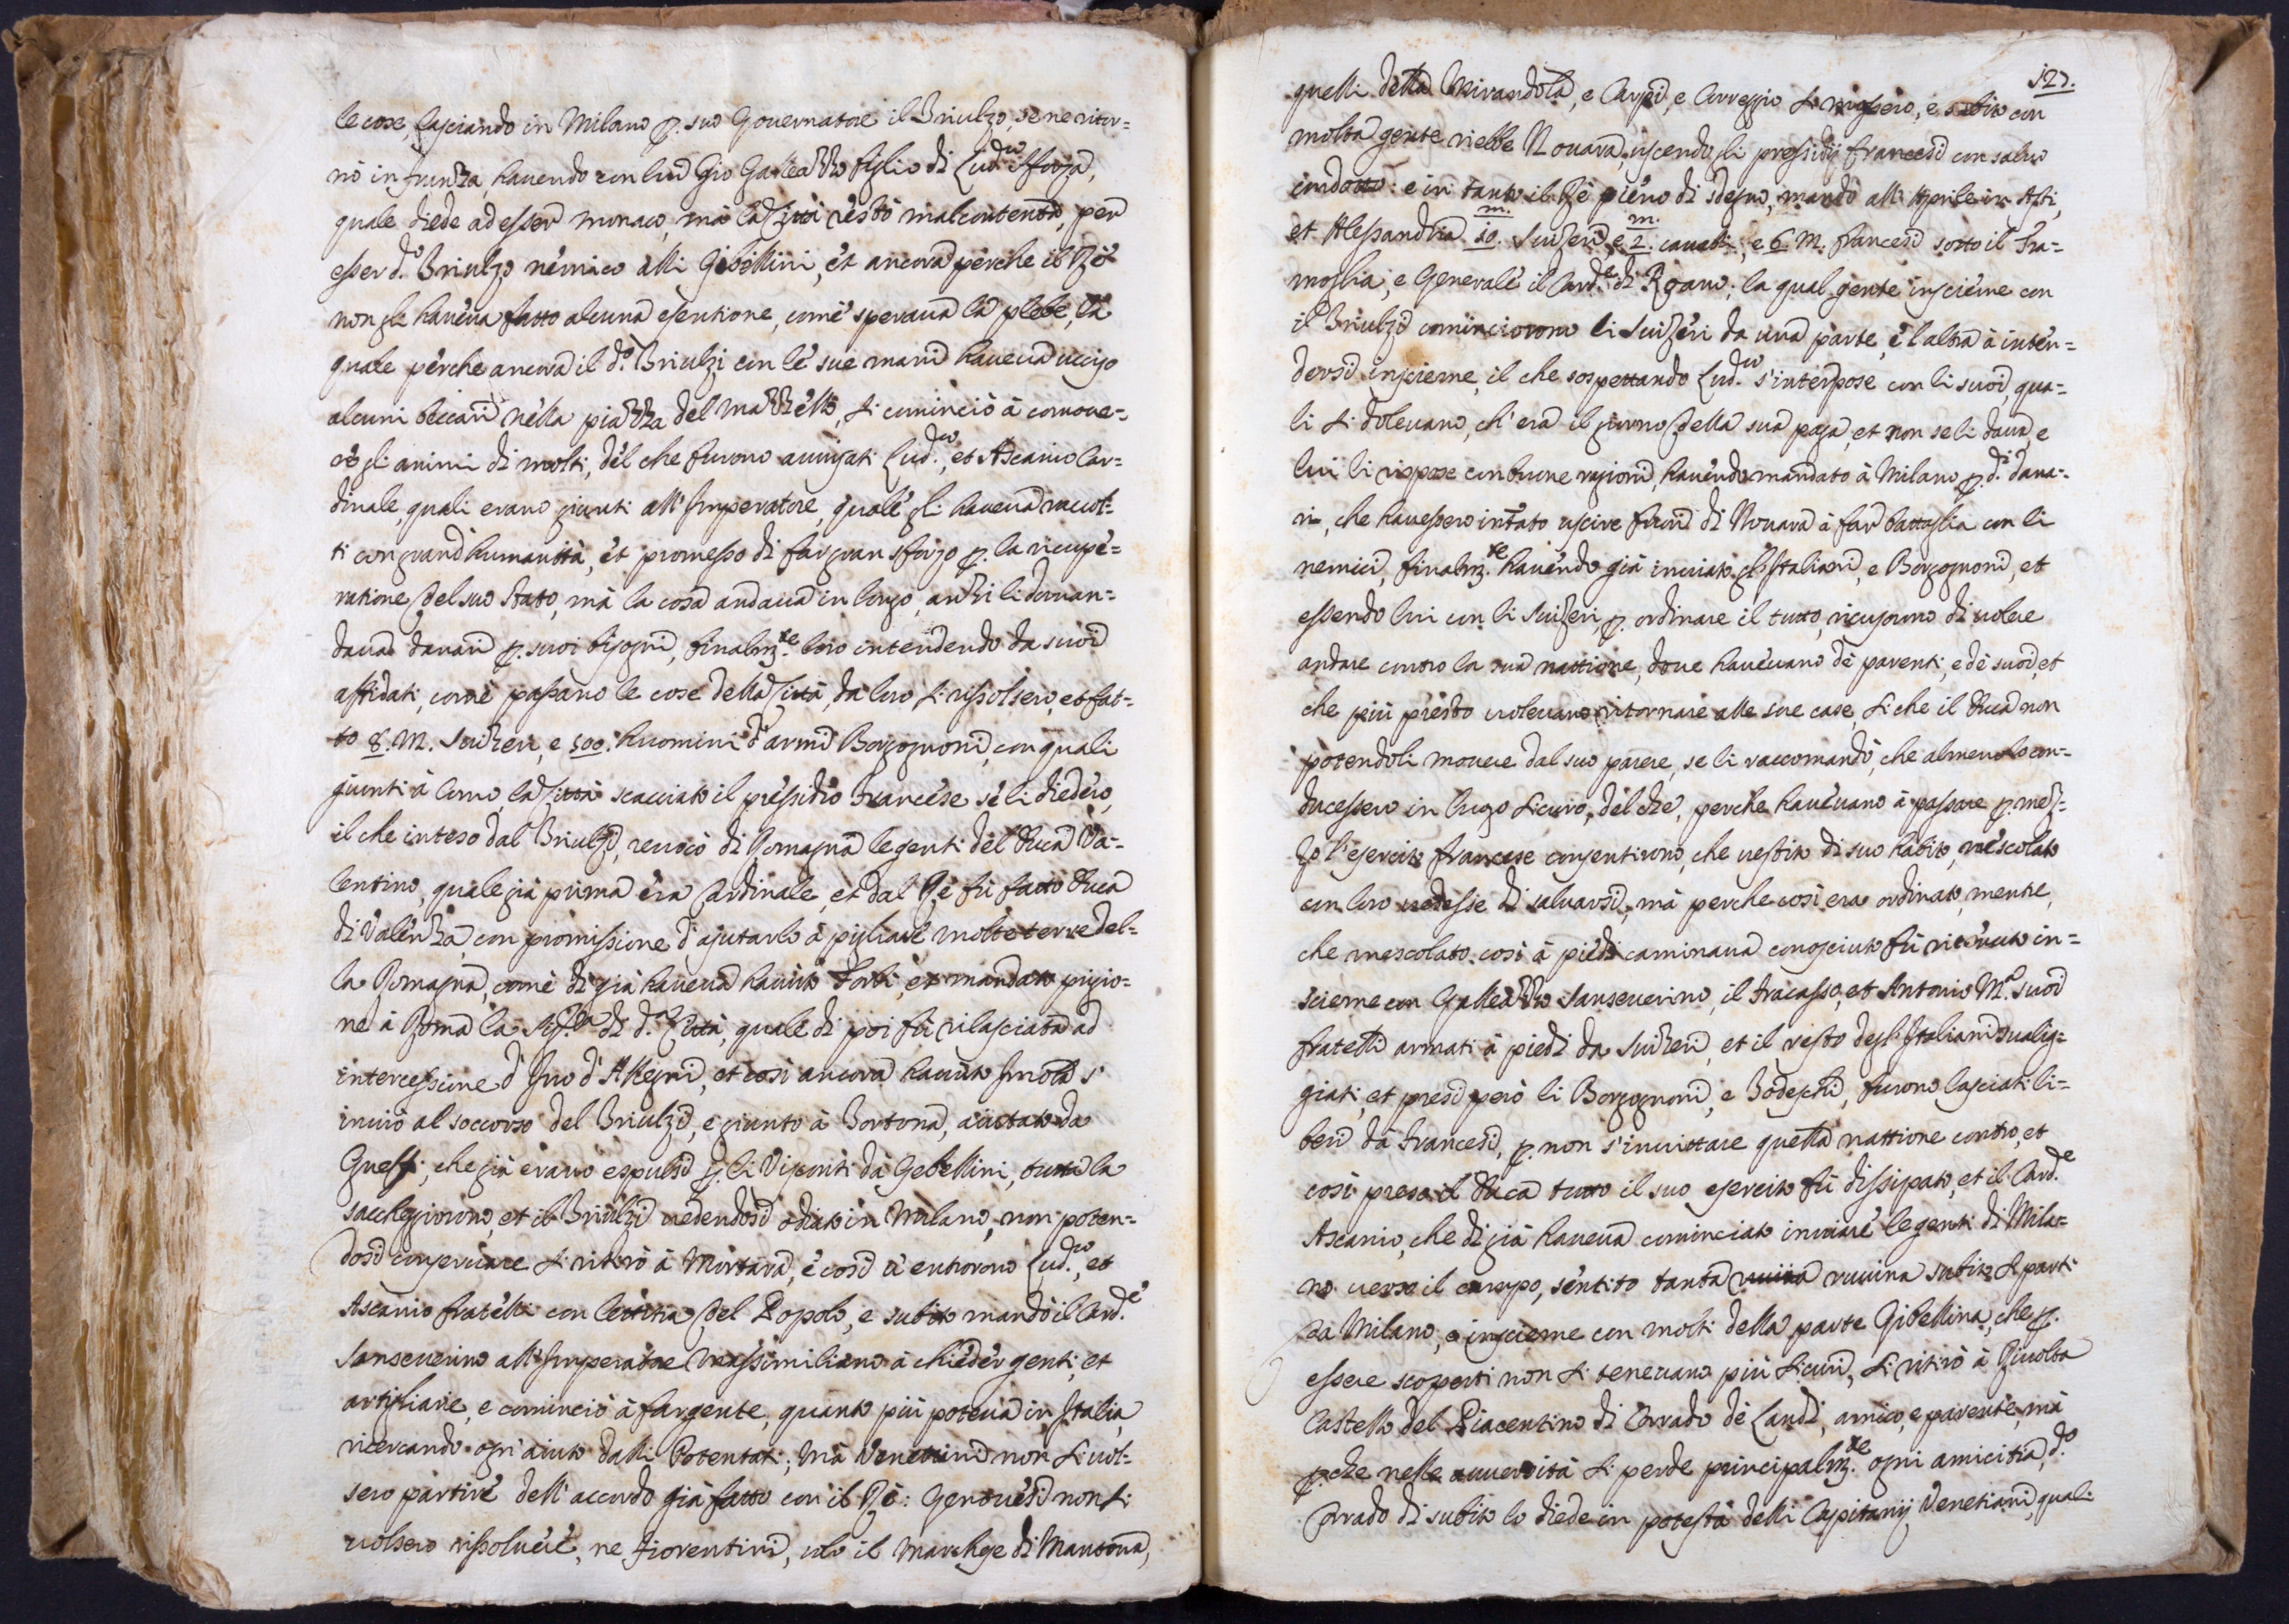 le cose, lasciando in Milano p. suo Gouernatore il Triulzo, se ne ritor=
nò in franza, hauendo con lui Gio Galeazzo figlio di Lud.co Sforza,
quale diede ad esser monaco, mà la Città restò malcontenta, per
esser d.o Triulzo nemico alli Gibellini, et ancora perche il Rè
non gli haueua fatto alcuna esentione, come speraua la plebe, la
quale perche ancora il d.o Triulzi con le sue mani haueua ucciso
alcuni beccari nella piazza del mazzello, si cominciò à comoue=
re gli animi di molti, del che furono auuisati Lud.co, et Ascanio Car=
dinale, quali erano giunti all'Imperatore, quale gli haueua raccol=
ti con grand'humanità, et promesso di far gran sforzo p. la ricupe=
ratione del suo Stato, mà la cosa andaua in longo, anzi li doman=
daua danari p. suoi bisogni, finalm.te loro intendendo da suoi
affidati, come passano le cose della Città, da loro si rissolsero, et fat=
to 8. M. Suizeri, e 500. huomini d'armi Borgognoni, con quali
giunti à Como, la Città scacciato il pressidio francese se li diedero,
il che inteso dal Triulzi, reuocò di Romagna le genti del Duca Va=
lentino, quale già prima era Cardinale, et dal Rè fù fatto Duca
di Valenza, con promissione d'ajutarlo à pigliare molte terre del=
la Romagna, come di già haueua hauuto Forlì, et mandato prigio=
ne à Roma la Sig.ra di d.a Città, quale di poi fù rilasciata ad
intercessione d'Iuo d'Allegri, et così ancora hauuto Imola s'
inuiò al soccorso del Triulzi, e giunto à Tortona, aiutato da
Guelfi, che già erano espulsi p. li Visconti da Gebellini, tutta la
saccheggiorono, et il Triulzi uedendosi odiato in Milano, non poten=
dosi conseruare si ritirò à Mortara, e così u'entrorono Lud.co, et
Ascanio fratelli con letitia del Popolo, e subito mandò il Card.e
Sanseuerino all'Imperatore Massimiliano à chieder genti, et
artigliarie, e cominciò à far gente, quanto più poteua in Italia,
ricercando ogn'aiuto dalli Potentati; mà Venettiani non si uol=
sero partire dell'accordo già fatto con il Rè: Genouesi non si
uolsero rissoluere, ne Fiorentini, solo il Marchese di Mantoua,
127.
quelli della Mirandola, e Carpi, e Correggio si mossero, e subito con
molta gente riebbe Nouara, uscendo gli pressidij francesi con saluo
condotto: e in tanto il Rè pieno di sdegno, mandò alli Aprile in Asti,
et Alessandria 10. m. Suizeri, e 2. m. caualli, e 6. M. francesi sotto il Tra=
moglia, e Generale il Card.e di Roano; la qual gente insieme con
il Triulzi cominciorono li Suizeri da una parte, e l'altra à inten=
dersi insieme, il che sospettando Lud.co s'interpose con li suoi, qua=
li si doleuano, ch'era il giorno della sua paga, et non se li daua, e
lui li rispose con buone ragioni, hauendo mandato à Milano p. d.i dana=
ri, che hauessero intato uscire fuori di Nouara à far battaglia con li
nemici, finalm.te hauendo già inuiato gl'Italiani, e Borgognoni, et
essendo lui con li Suizeri, p. ordinare il tutto, ricusorono di uolere
andare contro la sua nattione, doue haueuano de parenti, e de suoi, et
che più presto uoleuano ritornare alle sue case, si che il Duca non
potendoli mouere dal suo parere, se li raccomandò, che almeno lo con=
ducessero in luogo sicuro, del che, perche haueuano à passare p. mez=
zo l'esercito francese consentirono, che uestito di suo habito, mescolato
con loro uedesse di saluarsi, mà perche così era ordinato, mentre,
che mescolato così à piedi caminaua conosciuto fù ritenuto in=
sieme con Galleazzo Sanseuerino, il Fracasso, et Antonio M.a suoi
fratelli armati à piedi da Suizeri, et il resto degl'Italiani sualig=
giati, et presi però li Borgognoni, e Todeschi, furono lasciati li=
beri da francesi, p. non s'inuittare quella nattione contro, et
così preso il Duca tutto il suo esercito fù dissipato, et il Card.e
Ascanio, che di già haueua cominciato inuiare le genti di Mila=
no uerso il campo, sentito tanta ruuina subito si partì
da Milano, e insieme con molti della parte Gibellina, che p.
essere scoperti non si teneuano più sicuri, si ritirò à Riuolta
Castello del Piacentino di Corrado de Landi, amico, e parente, mà
p.che nelle auuersità si perde principalm.te ogni amicitia, d.o
Corrado di subito lo diede in potestà delli Capitanij Venetiani, quali